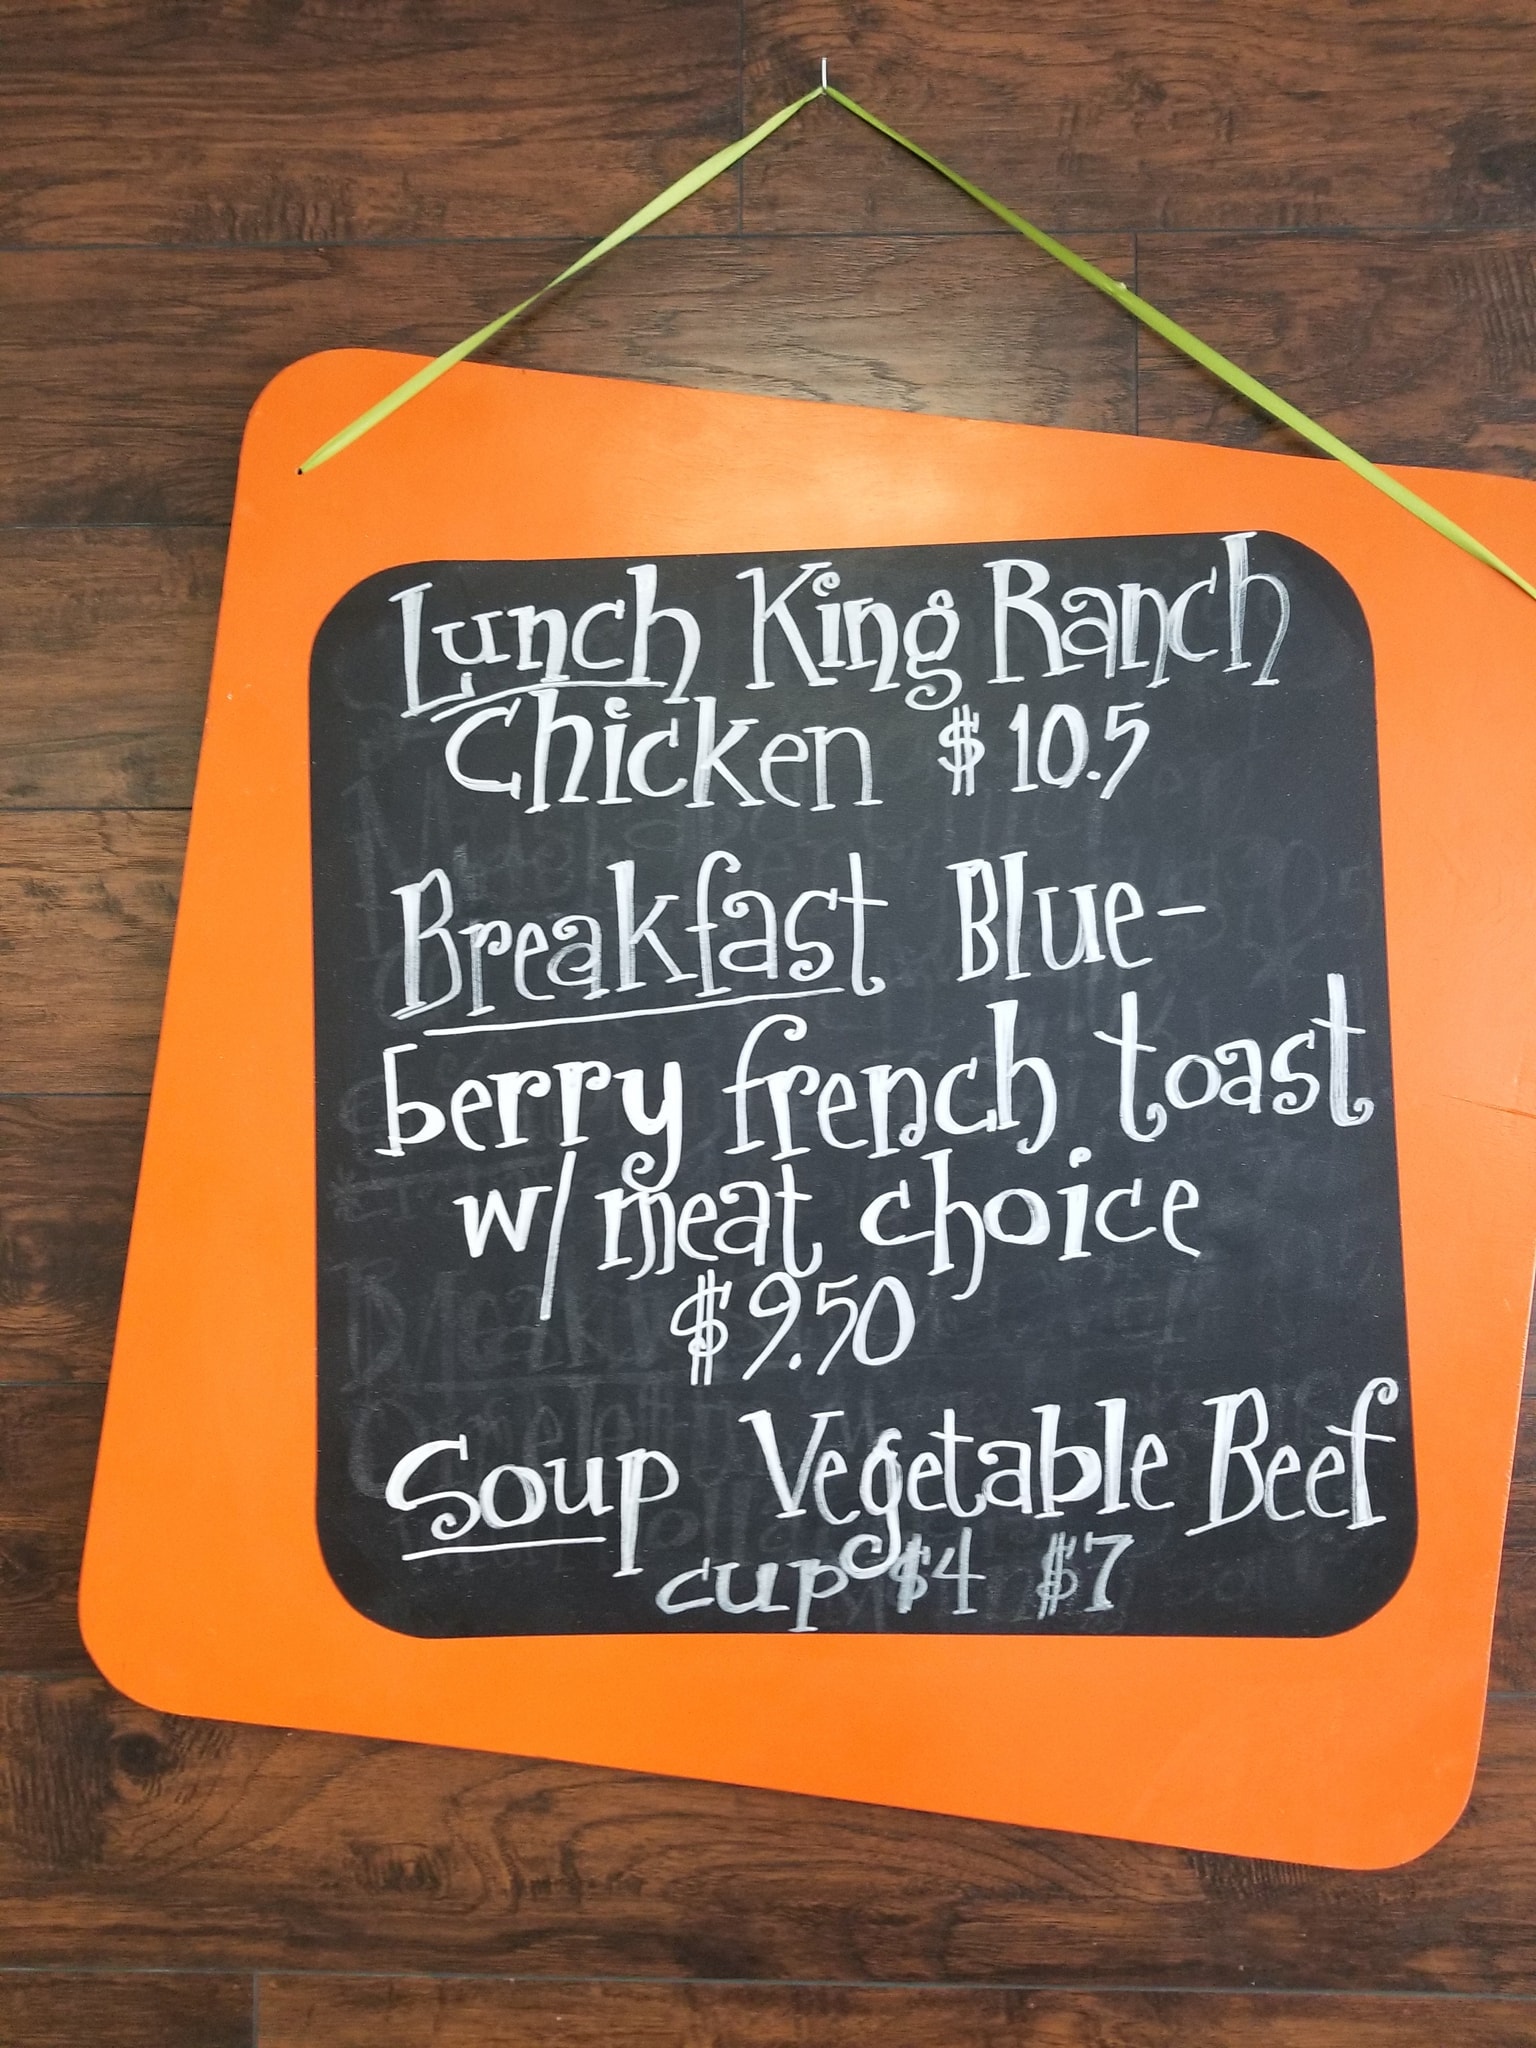 Lunch King Ranch
Chicken $10.5
Breakfast Blue-
berry french toast
w/ meat choice
$9.50
Soup Vegetable Beef
cup $4 $7